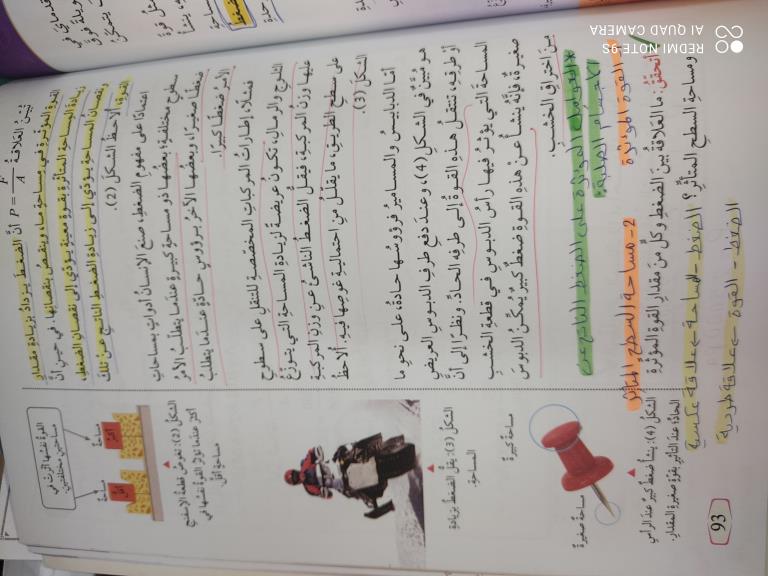 تُبيّنُ العلاقةُ P = F/A أنّ الضغطَ يزدادُ بزيادةِ مقدارِ
القوةِ المؤثّرةِ في مساحةٍ ما، وينقصُ بنقصانِها، في حينِ أنّ
زيادةَ المساحةِ المتأثرةِ بقوةٍ معينةٍ يؤدي إلى نقصانِ الضغطِ،
ونقصانَ المساحةِ يؤدي إلى زيادةِ الضغطِ الناتجِ عن تلكَ
القوةِ، ألاحظُ الشكلَ (2).
اعتمادًا على مفهومِ الضغطِ، صنعَ الإنسانُ أدواتٍ بمساحاتِ
سطوحٍ مختلفةٍ؛ بعضُها ذو مساحةٍ كبيرةٍ عندما يتطلّبُ الأمرُ
ضغطًا صغيرًا، وبعضُها الآخرُ برؤوسٍ حادةٍ عندما يتطلّبُ
الأمرُ ضغطًا كبيرًا.
فمثلًا، إطاراتُ المركباتِ المخصصةِ للتنقلِ على سطوحِ
الثلوجِ والرمالِ، تكونُ عريضةً لزيادةِ المساحةِ التي يتوزّعُ
عليها وزنُ المركبةِ، فيقلُّ الضغطُ الناشئُ عن وزنِ المركبةِ
على سطحِ الطريقِ، ما يقللُ من احتماليةِ غوصِها فيهِ. ألاحظُ
الشكلَ (3).
أمّا الدبابيسُ والمساميرُ فرؤوسُها حادةٌ، على نحوِ ما
هو مُبيّنٌ في الشكلِ (4)، وعندَ دفعِ طرفِ الدبوسِ العريضِ
أو طرقِهِ، تنتقلُ هذهِ القوةُ إلى طرفِهِ الحادِّ. ونظرًا إلى أنّ
المساحةَ التي يؤثرُ فيها رأسُ الدبوسِ في قطعةِ الخشبِ
صغيرةٌ، فإنّهُ ينشأُ عن هذهِ القوةِ ضغطٌ كبيرٌ يُمكّنُ الدبوسَ
من اختراقِ الخشبِ.
العوامل المؤثرة على الضغط الناتج عن
الاجسام الصلبة:
القوة المؤثرة
2- مساحة السطح المتأثر
أتحقّقُ: ما العلاقةُ بينَ الضغطِ وكلٍّ من مقدارِ القوةِ المؤثرةِ
ومساحةِ السطحِ المتأثرِ؟
الضغط - المساحة ← علاقة عكسية
الضغط - القوة ← علاقة طردية
القوةُ نفسُها أثّرتْ في
مساحتينِ مختلفتينِ.
مساحةٌ
أكبرُ
مساحةٌ
أقلُّ
الشكلُ (2): تغوصُ قطعةُ الإسفنجِ
أكثرَ عندما تؤثرُ القوةُ نفسُها في
مساحةٍ أقلَّ.
الشكلُ (3): يقلُّ الضغطُ بزيادةِ
المساحةِ.
مساحةٌ كبيرةٌ
مساحةٌ صغيرةٌ
الشكلُ (4): ينشأُ ضغطٌ كبيرٌ عندَ الرأسِ
الحادِّ عندَ التأثيرِ بقوةٍ صغيرةِ المقدارِ.
93
REDMI NOTE 9S
AI QUAD CAMERA